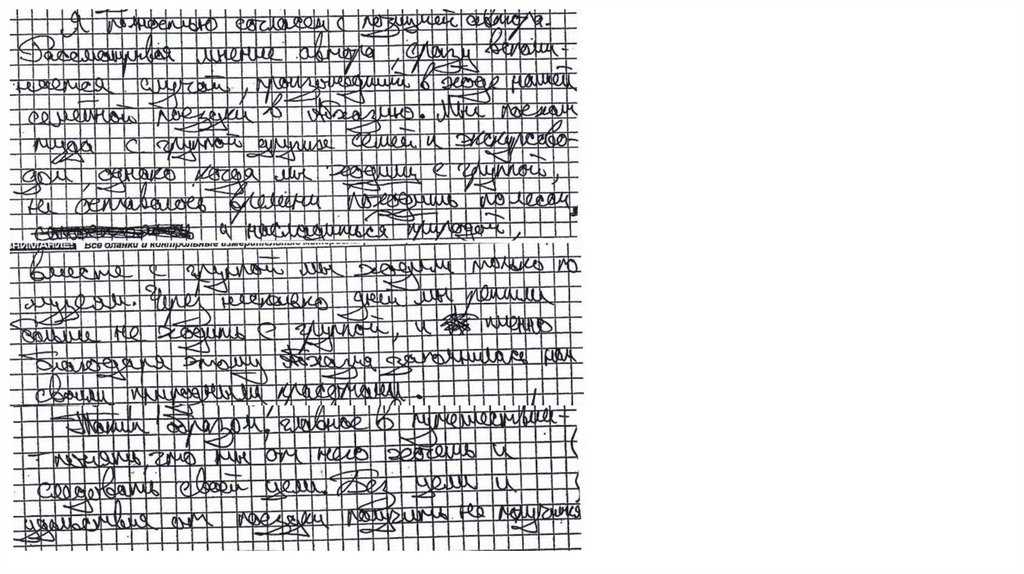 Я полностью согласен с позицией автора.
Рассматривая мнение автора, сразу вспоми-
нается случай, произошедший в ходе нашей
семейной поездки в Абхазию. Мы поехали
туда с группой других семей и экскурсово-
дом, однако когда мы ходили с группой,
не оставалось времени походить по лесам
и насладиться природой,
НИМАНИЕ! Все бланки и контрольные измерительные материалы
вместе с группой мы ходили только по
музеям. Через несколько дней мы решили
больше не ходить с группой, и именно
благодаря этому Абхазия запомнилась нам
своими природными красотами.
Таким образом, главное в путешествии-
- понять, что ты от него хочешь и
следовать своей цели. Без цели и
удовольствия от поездки получить не получится